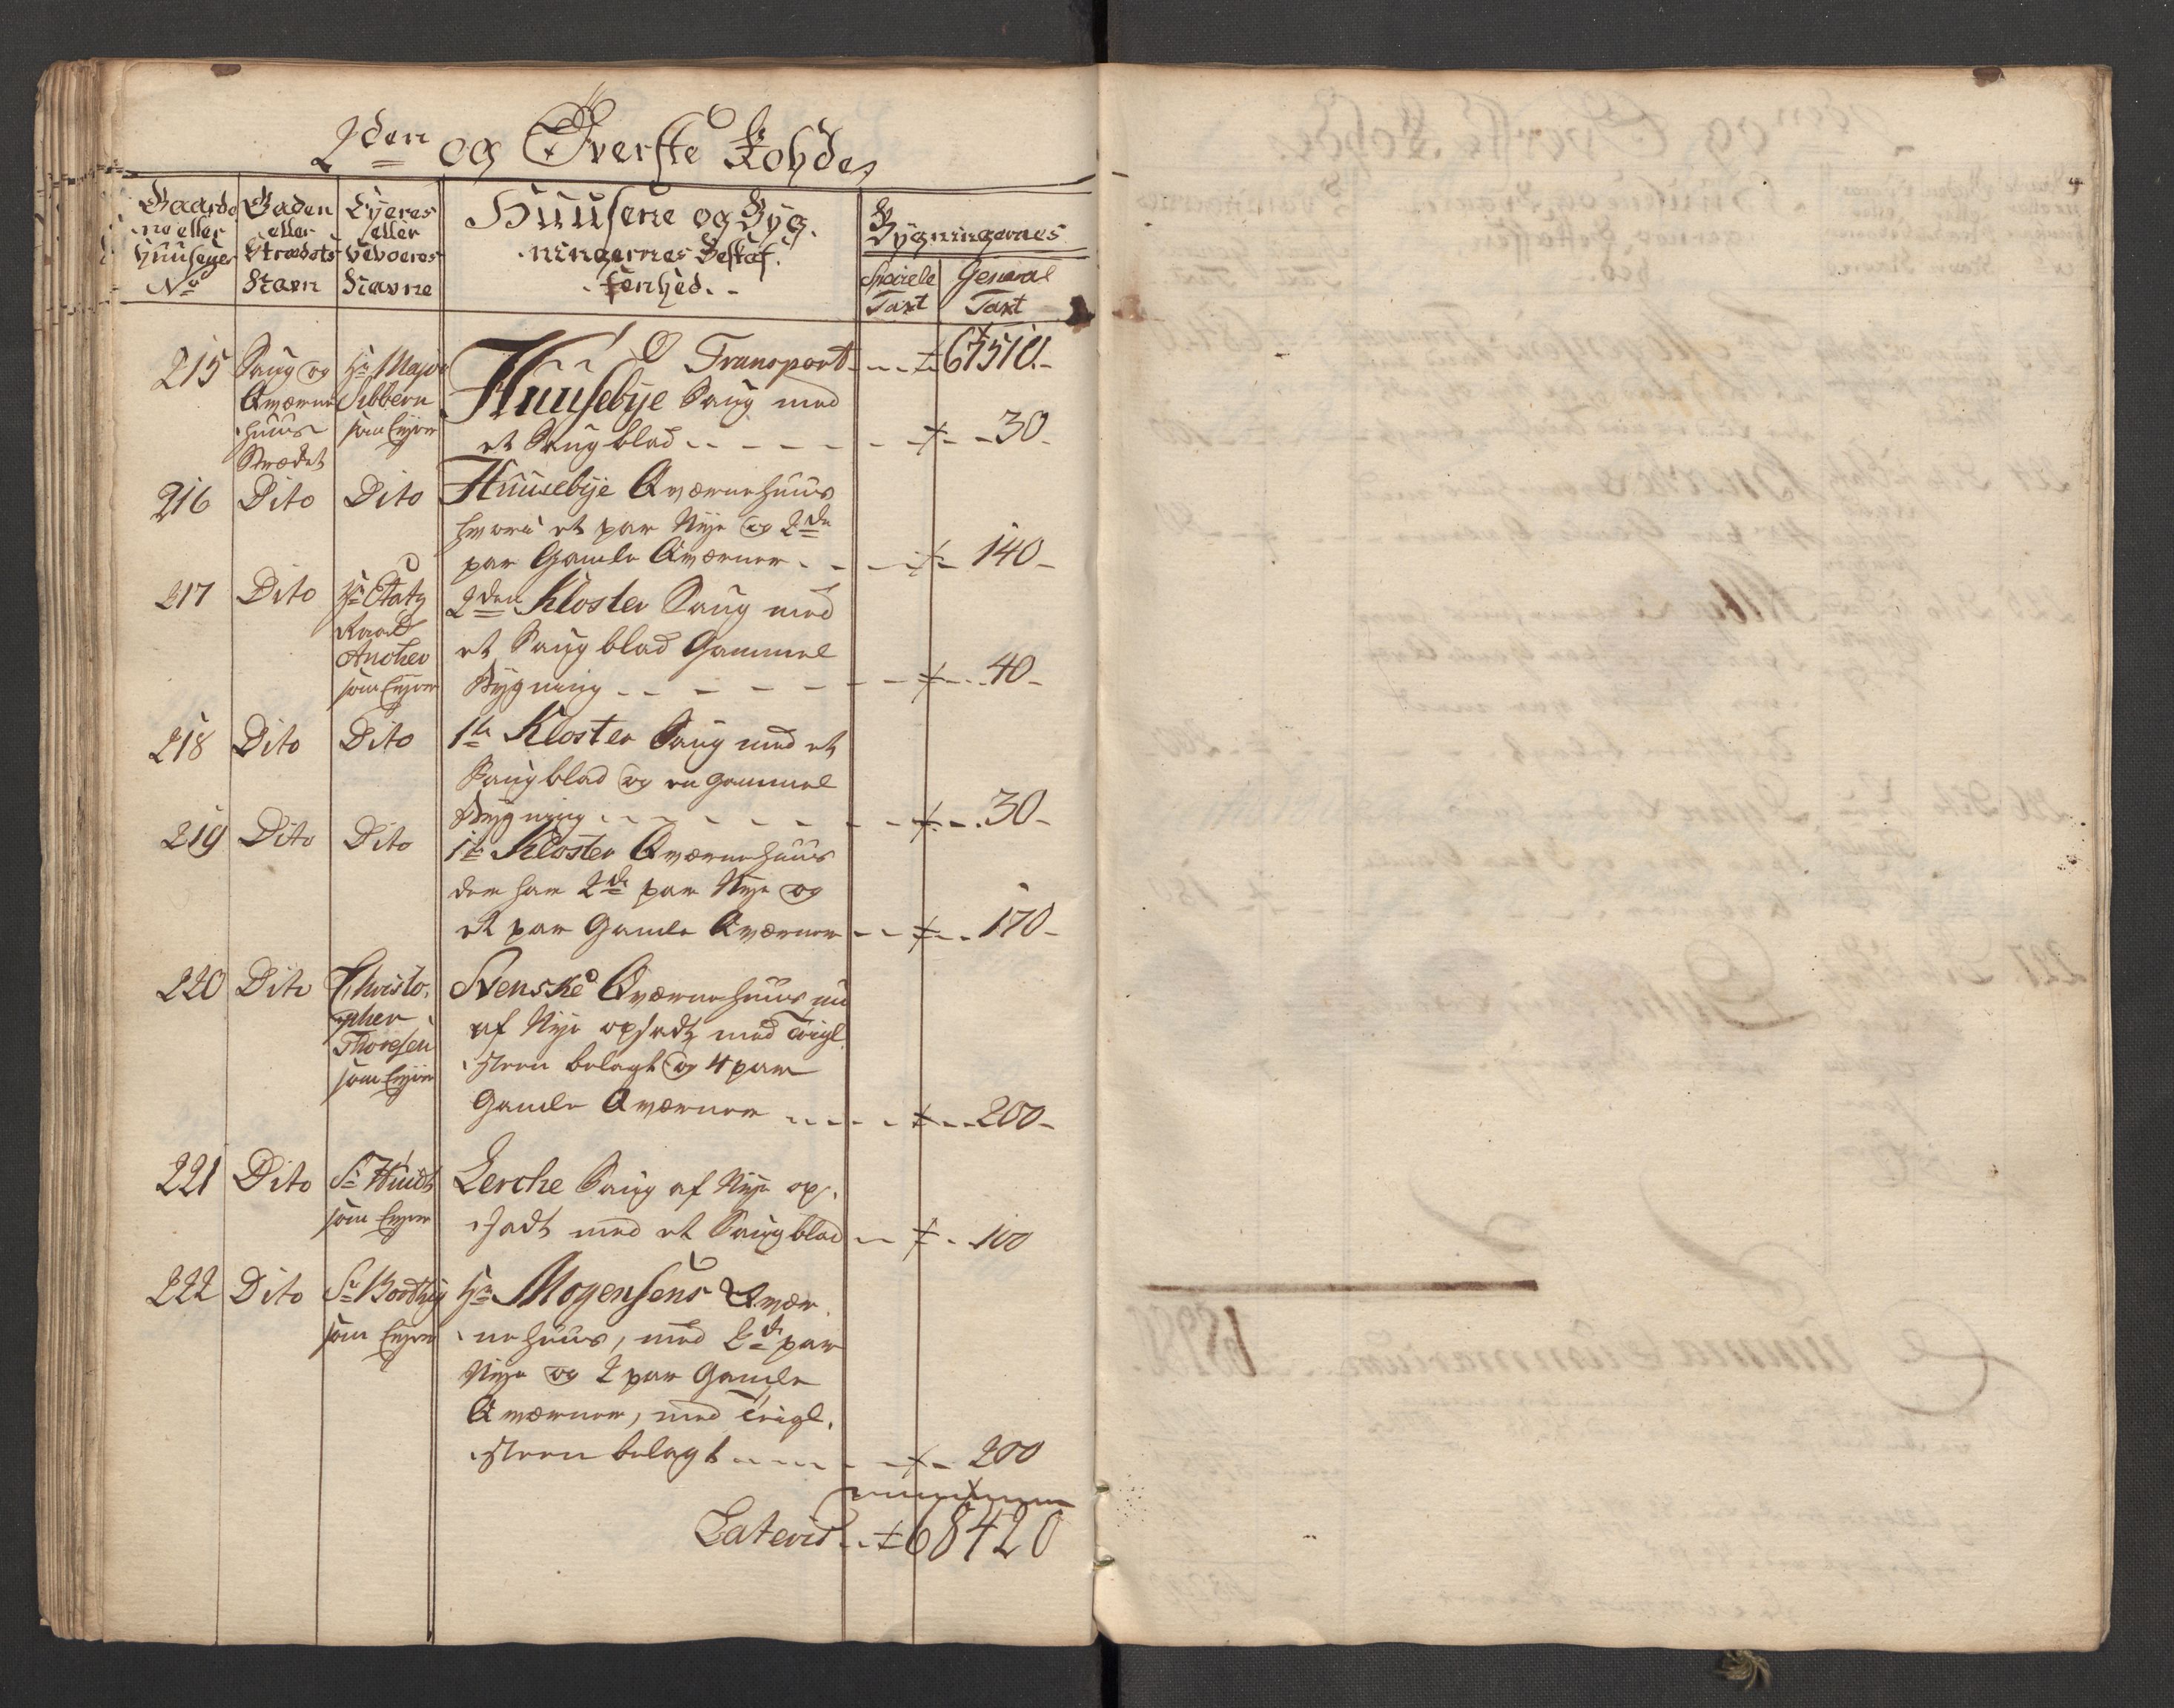 2den og Øverste Rohde,
Gaarde
ne eller
Huusenes
No
Gaden
eller
Strædets
Navn
Eyeres
eller
Bevoeres
Navne
Huusene og Byg,
ningernes Beskaf,
fenhed.
Bygningernes
Speciele
Taxt
General
Taxt
Transport 67510
215 Saug og
Qværne
huus
Strædet
Hr Major
Sibbern
som Eyer
Huusebye Saug med
et Saugblad 30
216 Dito Dito Huusebye Qværnehuus
hvori et par Nye og 2de
par Gamle Qværner 140
217 Dito Hr Etatz
Raad
Ancher
som Eyer
2den Kloster Saug med
et Saugblad Gammel
Bygning 40
218 Dito Dito 1te Kloster Saug med et
Saugblad og en gammel
Bygning 30
219 Dito Dito 1te Kloster Qværnehuus
der har 2de par Nye og
et par Gamle Qværner 170
220 Dito Christo,
pher
Thoresen
som Eyer
Svenske Qværnehuus nu
af Nye opsadt med Teigl,
steen belagt og 4 par
Gamle Qværner 200
221 Dito Sr Huidt
som Eyer
Lerche Saug af Nye op,
sadt med et Saugblad 100
222 Dito Sr
som Eyer
Hr Mogensens Qvær,
nehuus, med 2de par
Nye og 2 par Gamle
Qværner, med Teigl,
steen belagt 200
Lateris 68420